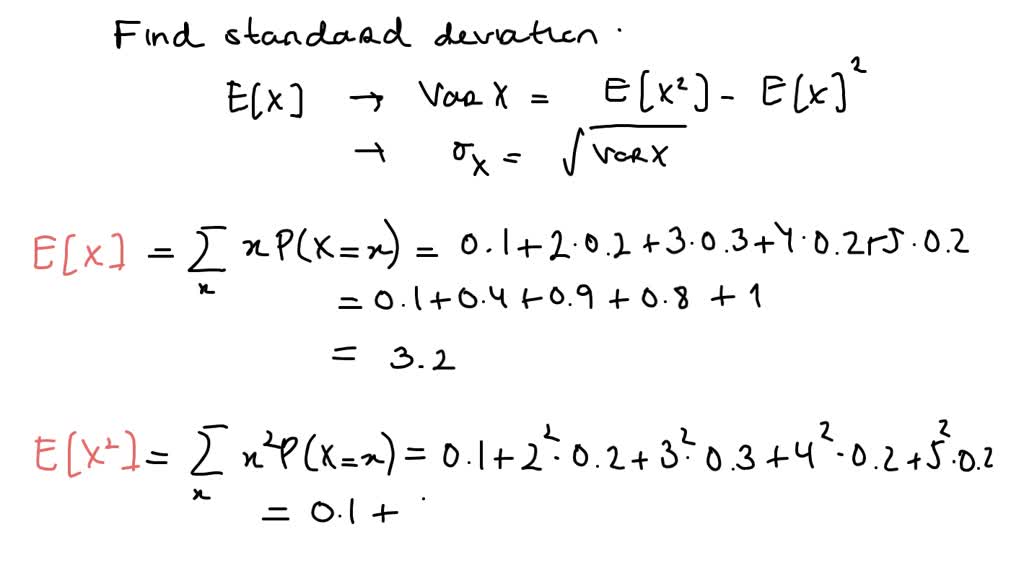 Find standard deviation.
E[X] → Var X = E[X²] - E[X]²
→ σ_X = √Var X
E[X] = ∑_x x P(X=x) = 0.1+2·0.2+3·0.3+4·0.2+5·0.2
= 0.1+0.4+0.9+0.8+1
= 3.2
E[X²] = ∑_x x²P(X=x) = 0.1+2²·0.2+3²·0.3+4²·0.2+5²·0.2
= 0.1+